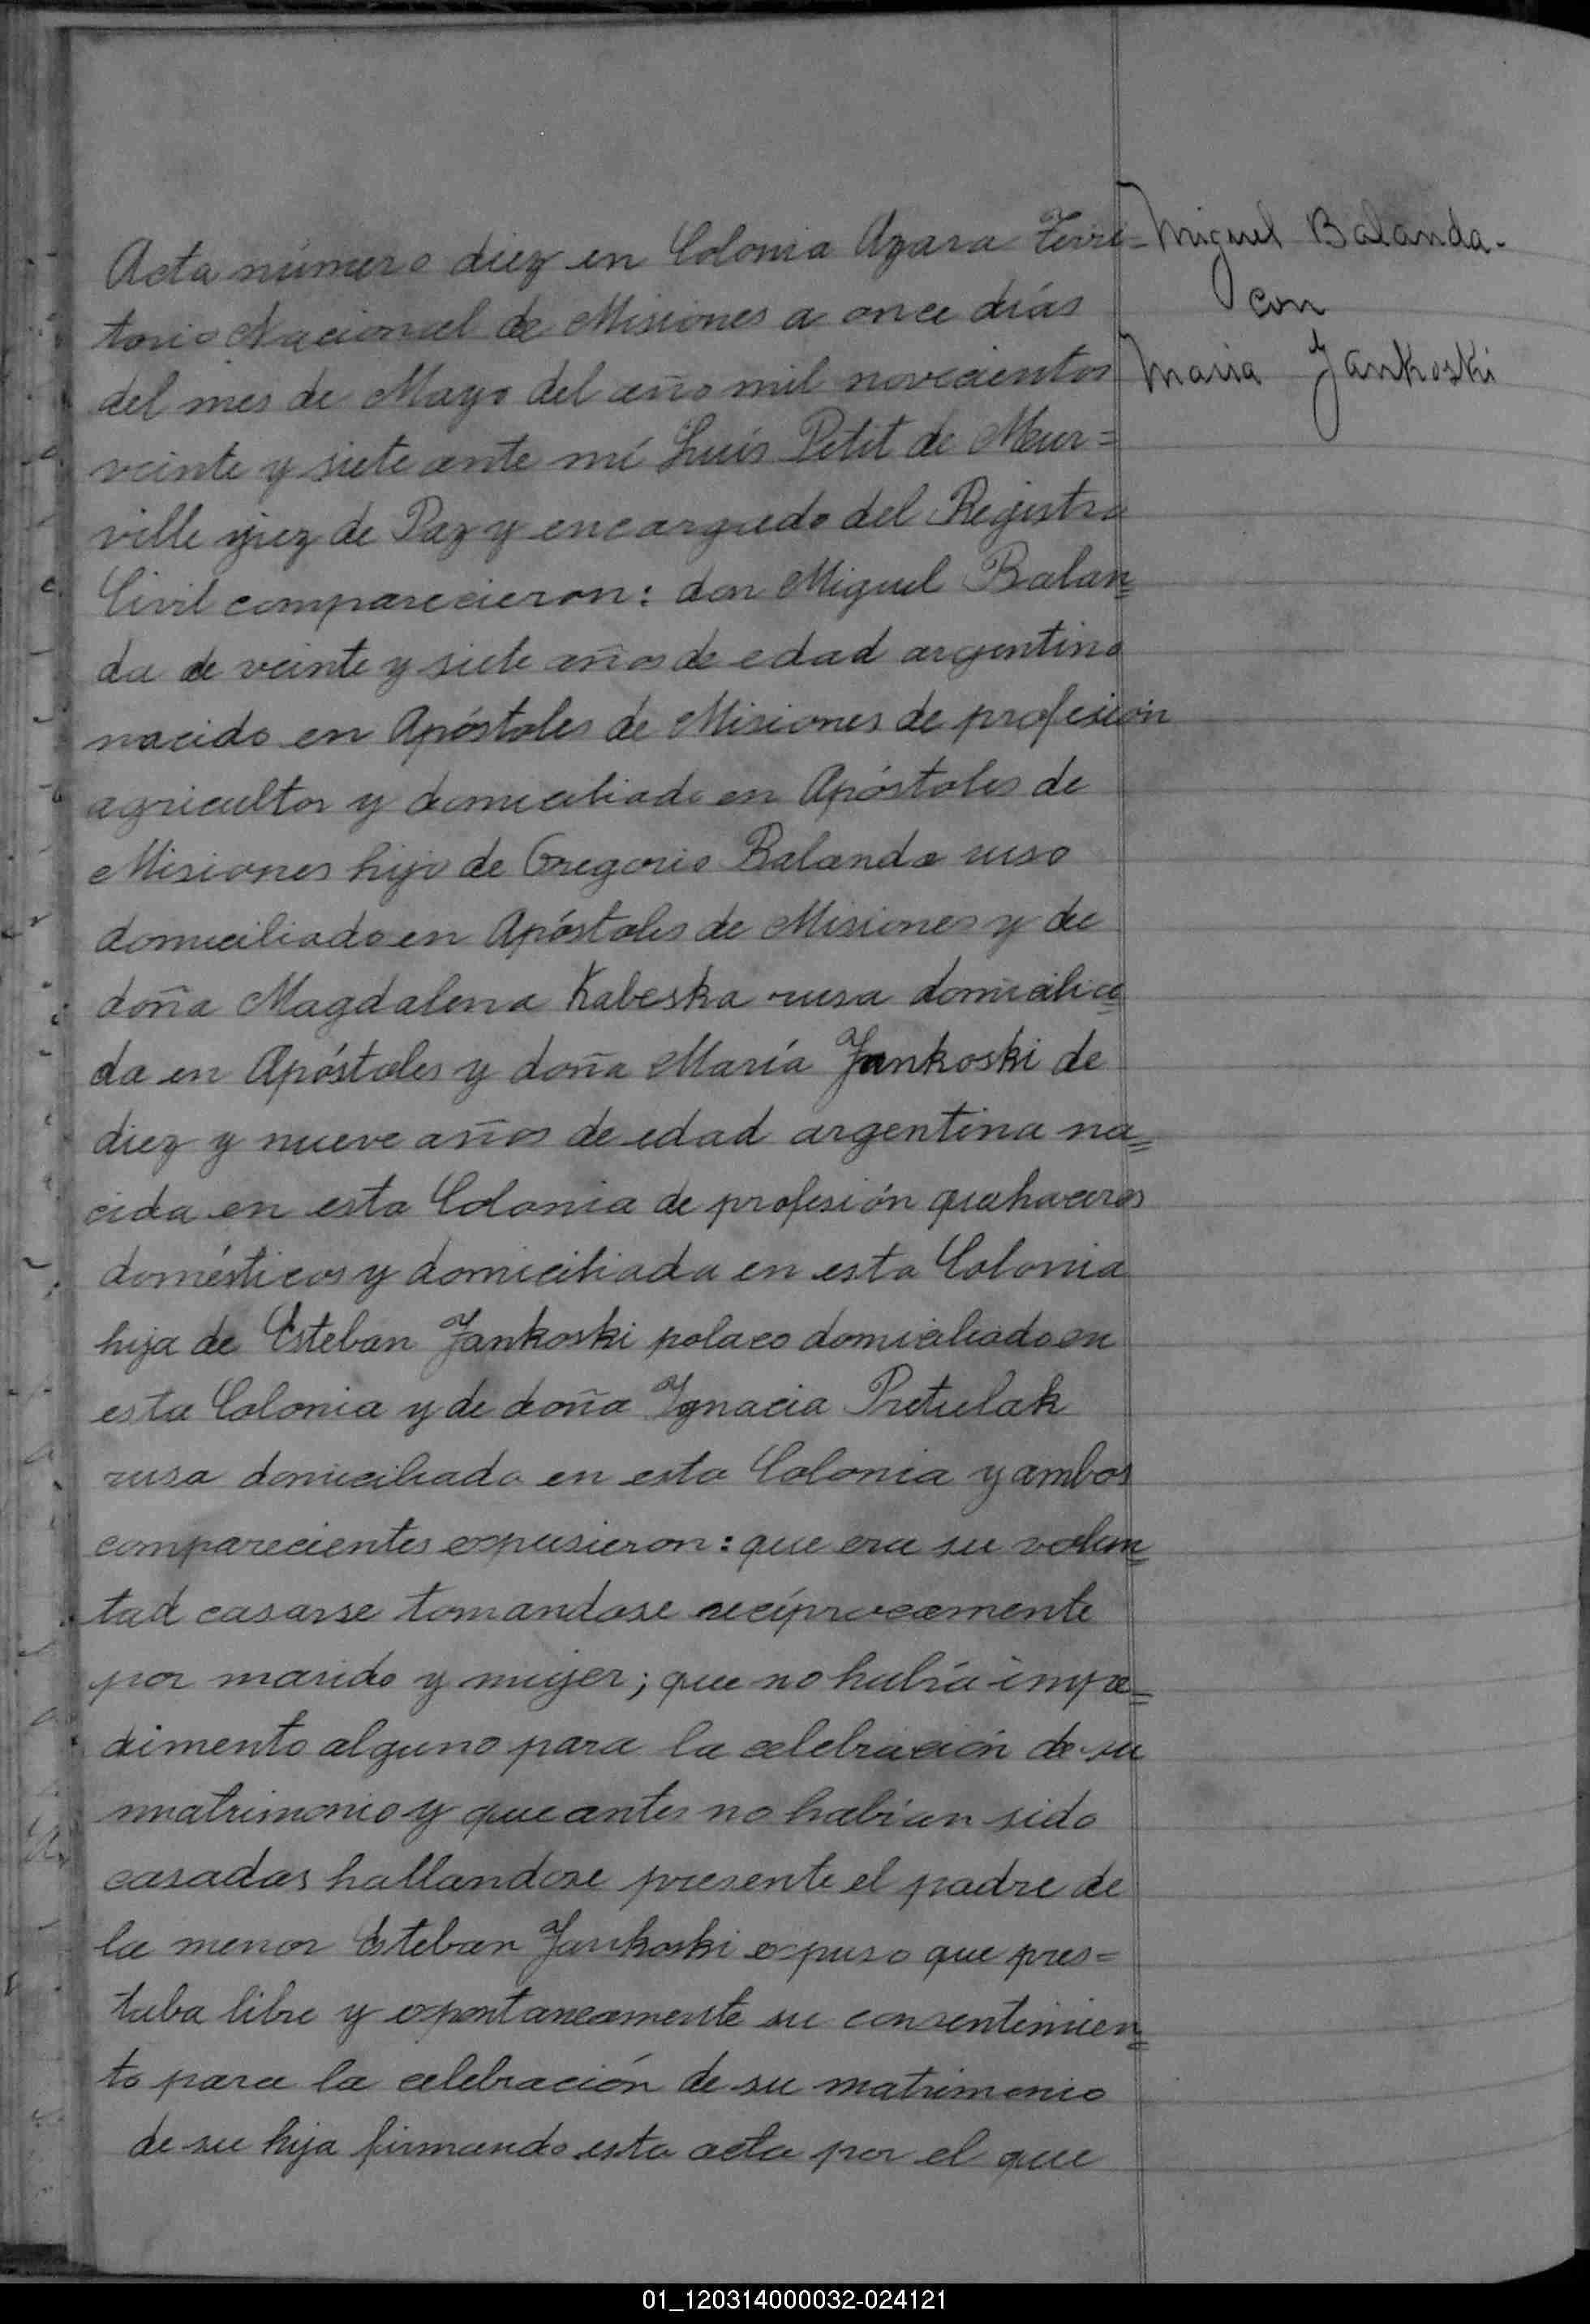 Acta número diez en Colonia Azara Terri=
torio Nacional de Misiones a once días
del mes de Mayo del año mil novecientos
veinte y siete ante mí Luis Petit de Meur=
ville juez de Paz y encargado del Registro
Civil comparecieron: don Miguel Balan=
da de veinte y siete años de edad argentino
nacido en Apóstoles de Misiones de profesión
agricultor y domiciliado en Apóstoles de
Misiones hijo de Gregorio Balanda ruso
domiciliado en Apóstoles de Misiones y de
doña Magdalena Kabeska rusa domicilia=
da en Apóstoles y doña María Jankoski de
diez y nueve años de edad argentina na=
cida en esta Colonia de profesión quehaceres
domésticos y domiciliada en esta Colonia
hija de Esteban Jankoski polaco domiciliado en
esta Colonia y de doña Ignacia Pretulak
rusa domiciliada en esta Colonia y ambos
comparecientes expusieron: que era su volun=
tad casarse tomandose recíprocamente
por marido y mujer; que no había impe=
dimento alguno para la celebración de su
matrimonio y que antes no habían sido
casados hallandose presente el padre de
la menor Esteban Jankoski expuso que pres=
taba libre y expontaneamente su consentimien=
to para la celebración de su matrimonio
de su hija firmando esta acta por el que
Miguel Balanda.
con
Maria Jankoski
01_120314000032-024121